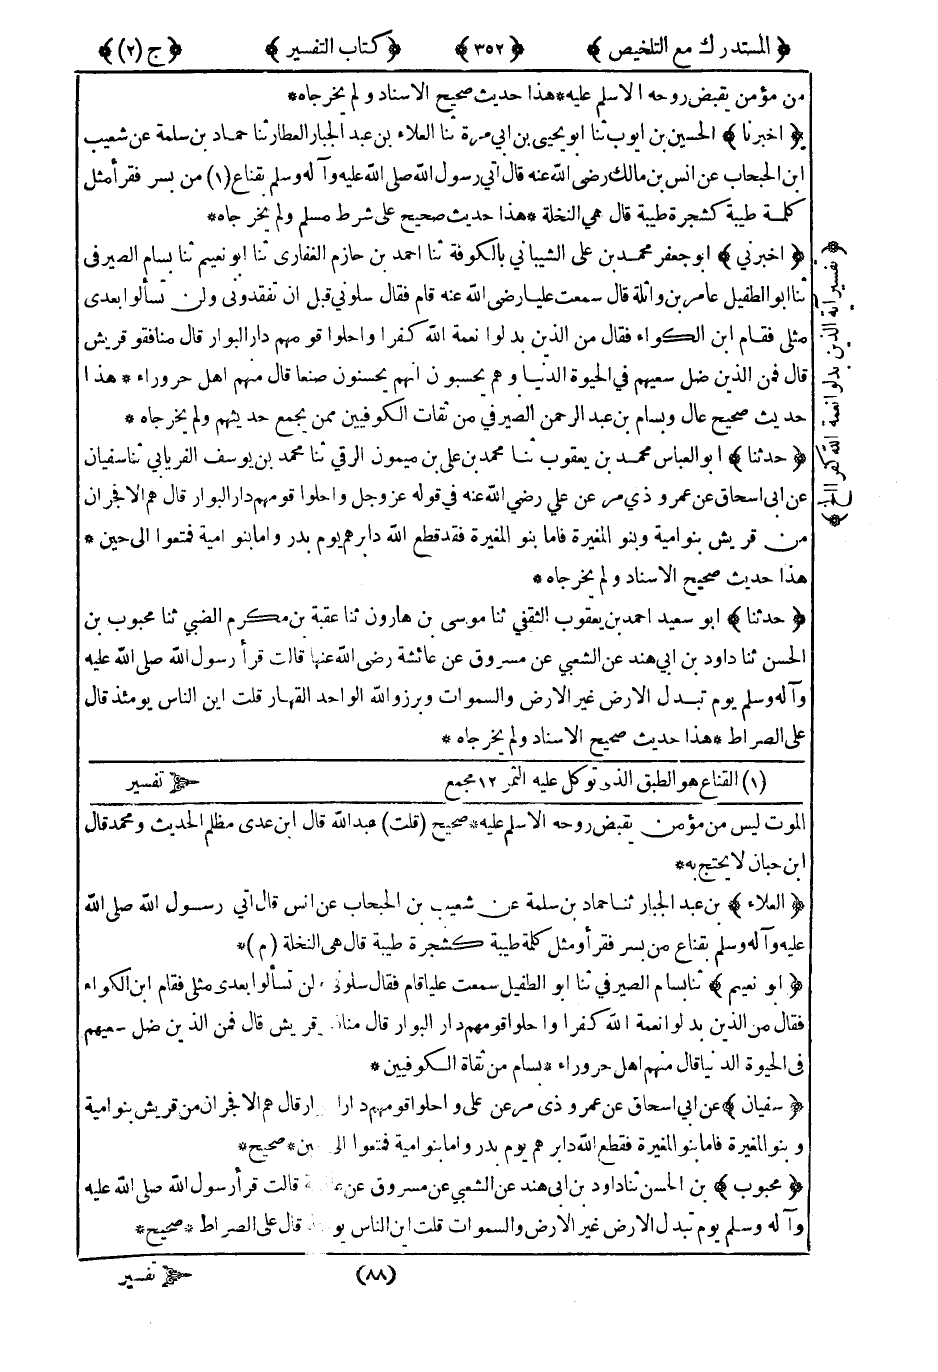 ﴿ المستدرك مع التلخيص ﴾ ﴿ ٣٥٢ ﴾ ﴿ كتاب التفسير ﴾ ﴿ ج (٢) ﴾
من مؤمن يقبض روحه الا سلم عليه * هذا حديث صحيح الاسناد ولم يخرجاه *
﴿ اخبرنا ﴾ الحسين بن ايوب ثنا ابو يحيى بن ابي مرة ثنا العلاء بن عبد الجبار العطار ثنا حماد بن سلمة عن شعيب
ابن الحبحاب عن انس بن مالك رضى الله عنه قال اتي رسول الله صلى الله عليه وآله وسلم بقناع (١) من بسر فقرأ مثل
كلمة طيبة كشجرة طيبة قال هي النخلة * هذا حديث صحيح على شرط مسلم ولم يخرجاه *
﴿ اخبرني ﴾ ابو جعفر محمد بن على الشيباني بالكوفة ثنا احمد بن حازم الغفارى ثنا ابو نعيم ثنا بسام الصيرفى
ثنا ابو الطفيل عامر بن واثلة قال سمعت عليا رضى الله عنه قام فقال سلوني قبل ان تفقدونى ولن تسألوا بعدى
مثلى فقام ابن الكواء فقال من الذين بدلوا نعمة الله كفرا واحلوا قومهم دار البوار قال منافقو قريش
قال فمن الذين ضل سعيهم في الحيوة الدنيا وهم يحسبون انهم يحسنون صنعا قال منهم اهل حروراء * هذا
حديث صحيح عال وبسام بن عبد الرحمن الصيرفي من ثقات الكوفيين ممن يجمع حديثهم ولم يخرجاه *
﴿ حدثنا ﴾ ابو العباس محمد بن يعقوب ثنا محمد بن على بن ميمون الرقي ثنا محمد بن يوسف الفريابي ثنا سفيان
عن ابى اسحاق عن عمرو ذي مر عن علي رضي الله عنه في قوله عز وجل واحلوا قومهم دار البوار قال هم الافجران
من قريش بنو امية وبنو المغيرة فاما بنو المغيرة فقد قطع الله دابرهم يوم بدر واما بنو امية فمتعوا الى حين *
هذا حديث صحيح الاسناد ولم يخرجاه *
﴿ حدثنا ﴾ ابو سعيد احمد بن يعقوب الثقفي ثنا موسى بن هارون ثنا عقبة بن مكرم الضبي ثنا محبوب بن
الحسن ثنا داود بن ابي هند عن الشعبي عن مسروق عن عائشة رضى الله عنها قالت قرأ رسول الله صلى الله عليه
وآله وسلم يوم تبدل الارض غير الارض والسموات وبرزوا لله الواحد القهار قلت اين الناس يومئذ قال
على الصراط * هذا حديث صحيح الاسناد ولم يخرجاه *
﴿ تفسير آية الذين بدلوا نعمة الله كفرا الخ ﴾
(١) القناع هو الطبق الذى توكل عليه التمر ١٢ مجمع تفسير
الموت ليس من مؤمن يقبض روحه الا سلم عليه * صحيح (قلت) عبد الله قال ابن عدى مظلم الحديث ومحمد قال
ابن حبان لا يحتج به *
﴿ العلاء ﴾ بن عبد الجبار ثنا حماد بن سلمة عن شعيب بن الحبحاب عن انس قال اتي رسول الله صلى الله
عليه وآله وسلم بقناع من بسر فقرأ ومثل كلمة طيبة كشجرة طيبة قال هى النخلة (م) *
﴿ ابو نعيم ﴾ ثنا بسام الصيرفي ثنا ابو الطفيل سمعت عليا قام فقال سلوني لن تسألوا بعدى مثلى فقام ابن الكواء
فقال من الذين بدلوا نعمة الله كفرا واحلوا قومهم دار البوار قال قريش قال فمن الذين ضل سعيهم
فى الحيوة الدنيا قال منهم اهل حروراء * بسام من ثقاة الكوفيين *
﴿ سفيان ﴾ عن ابي اسحاق عن عمرو ذى مر عن على واحلوا قومهم دار قال هم الافجران من قريش بنو امية
وبنو المغيرة فاما بنو المغيرة فقطع الله دابرهم يوم بدر واما بنو امية فمتعوا * صحيح *
﴿ محبوب ﴾ بن الحسن ثنا داود بن ابى هند عن الشعبي عن مسروق عن قالت قرأ رسول الله صلى الله عليه
وآله وسلم يوم تبدل الارض غير الارض والسموات قلت اين الناس قال على الصراط * صحيح *
(٨٨) تفسير